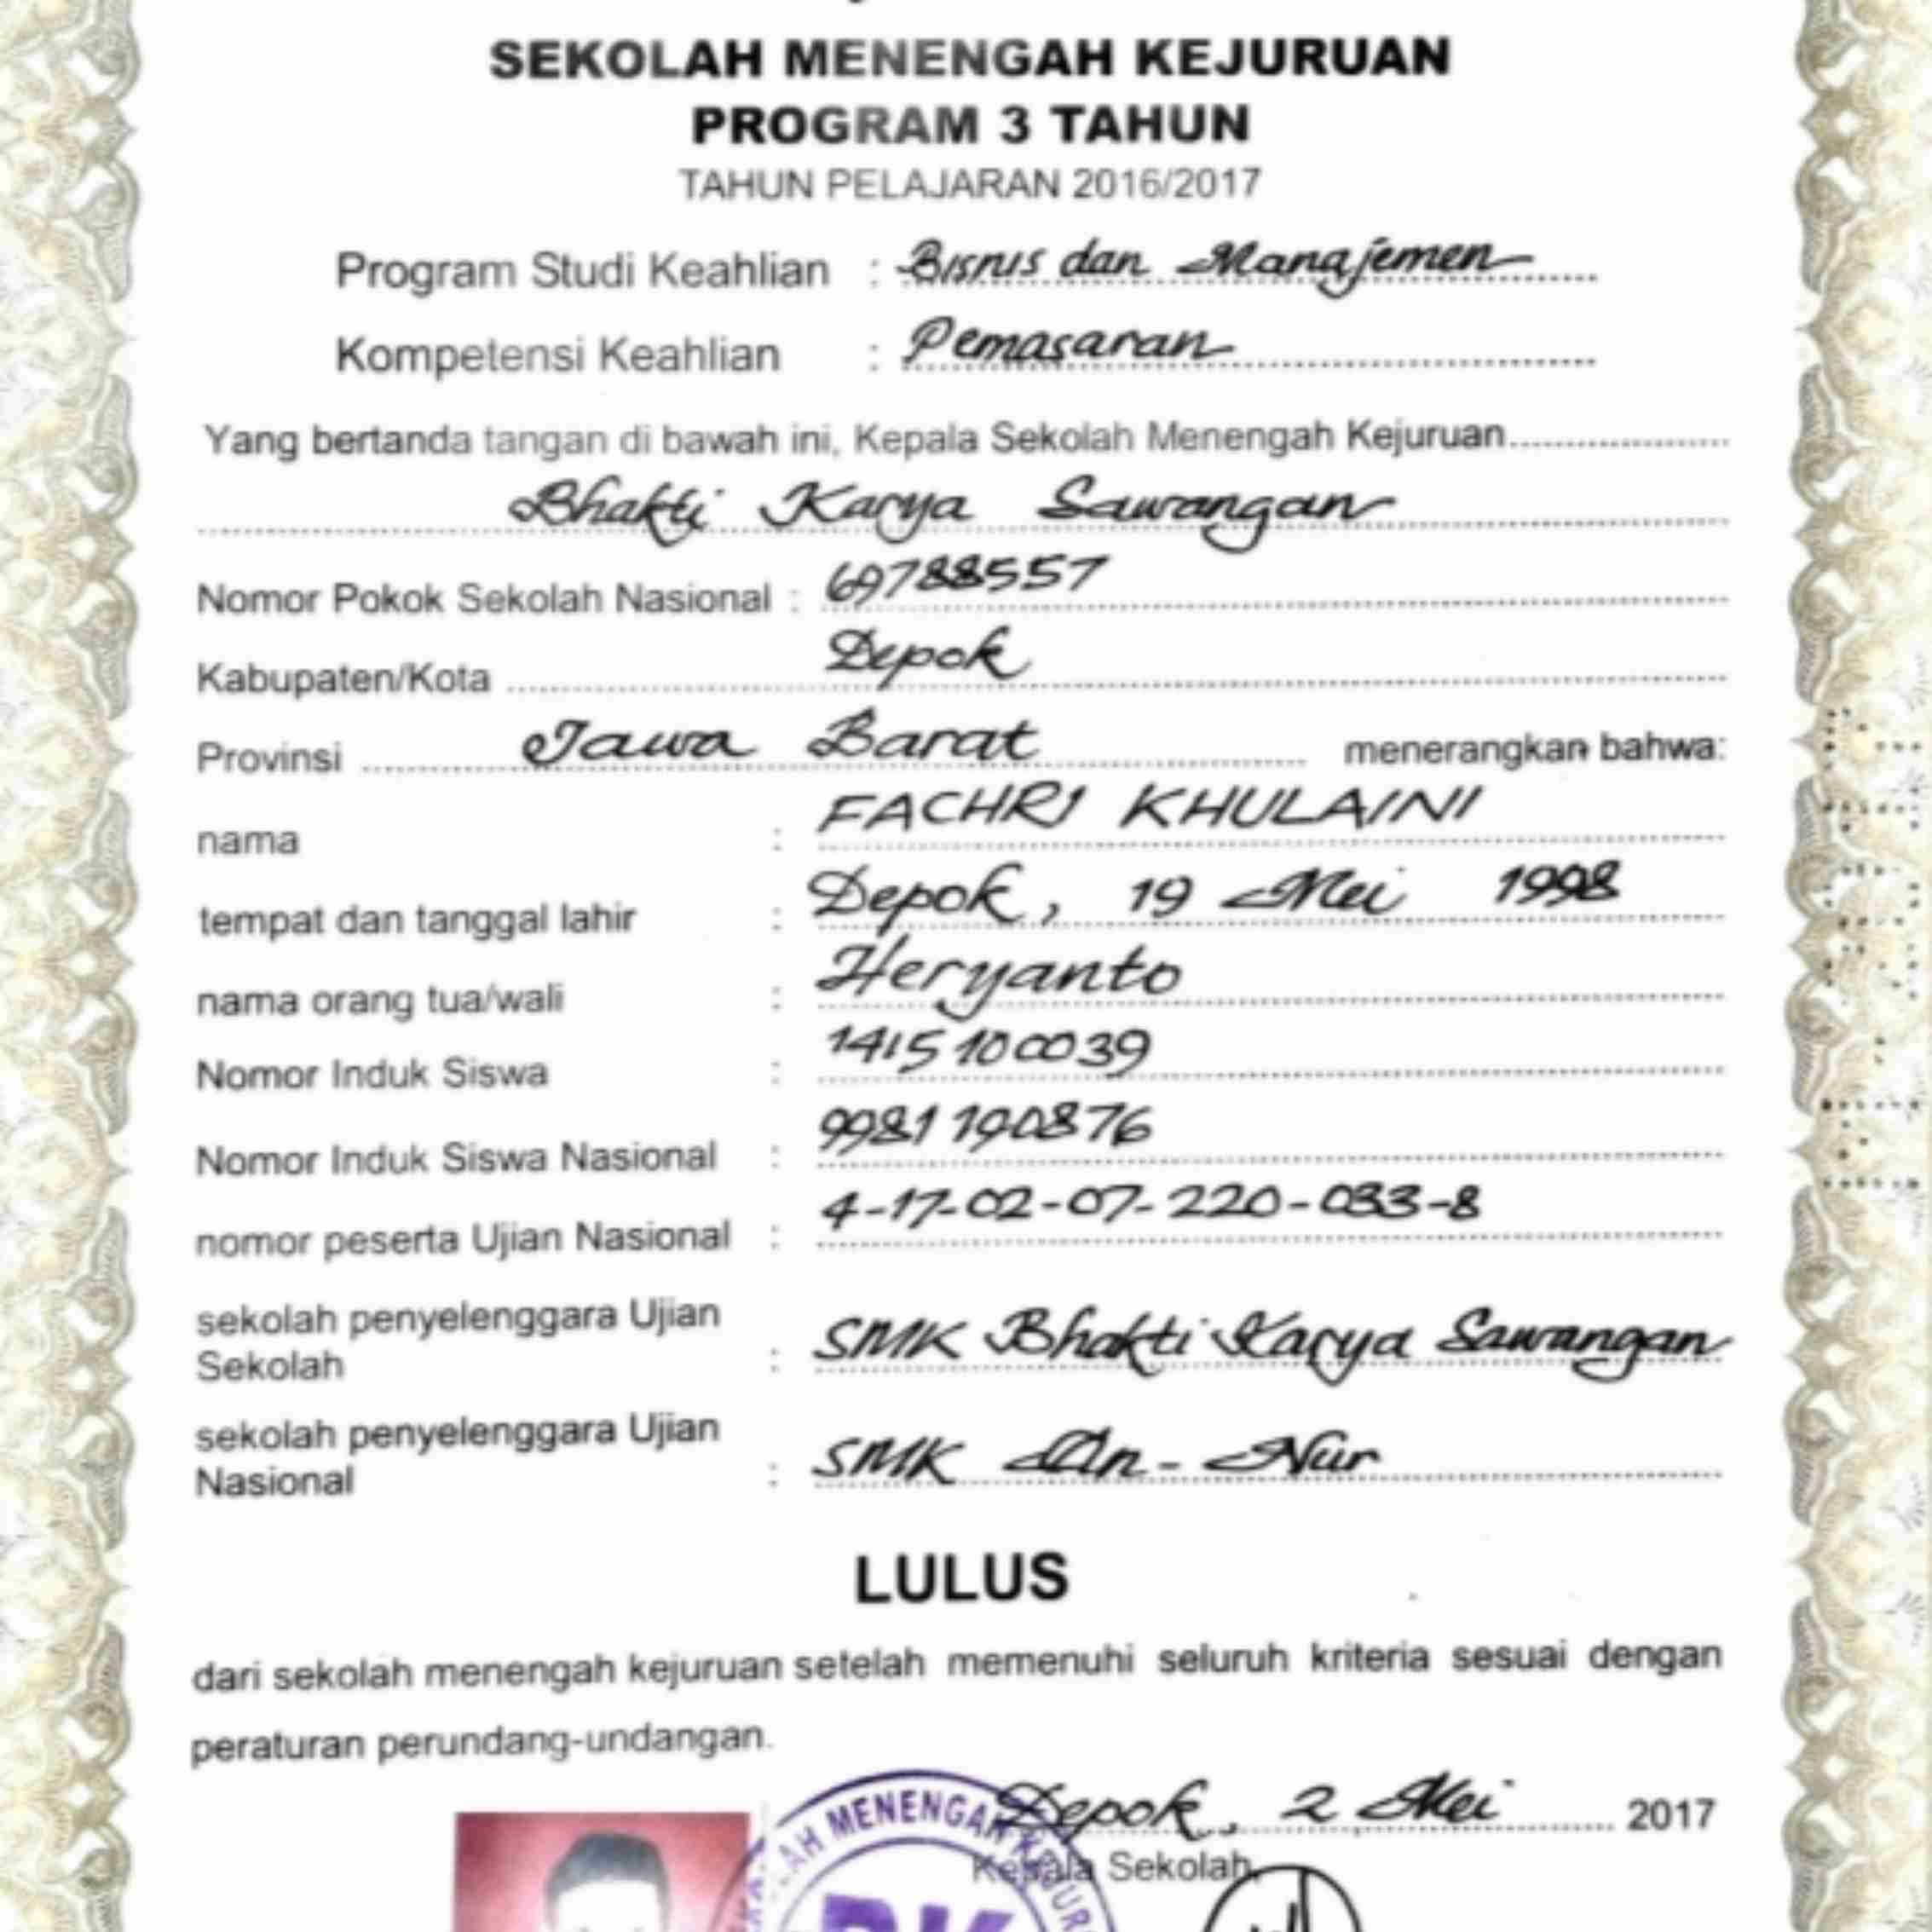 SEKOLAH MENENGAH KEJURUAN
PROGRAM 3 TAHUN
TAHUN PELAJARAN 2016/2017
Program Studi Keahlian : Bisnis dan Manajemen
Kompetensi Keahlian : Pemasaran
Yang bertanda tangan di bawah ini, Kepala Sekolah Menengah Kejuruan
Bhakti Karya Sawangan
Nomor Pokok Sekolah Nasional : 69788557
Kabupaten/Kota Depok
Provinsi Jawa Barat menerangkan bahwa:
nama : FACHRI KHULAINI
tempat dan tanggal lahir : Depok, 19 Mei 1998
nama orang tua/wali : Heryanto
Nomor Induk Siswa : 1415100039
Nomor Induk Siswa Nasional : 9981190876
nomor peserta Ujian Nasional : 4-17-02-07-220-033-8
sekolah penyelenggara Ujian
Sekolah : SMK Bhakti Karya Sawangan
sekolah penyelenggara Ujian
Nasional : SMK An-Nur
LULUS
dari sekolah menengah kejuruan setelah memenuhi seluruh kriteria sesuai dengan
peraturan perundang-undangan.
Depok, 2 Mei 2017
Kepala Sekolah,
MENENGAH